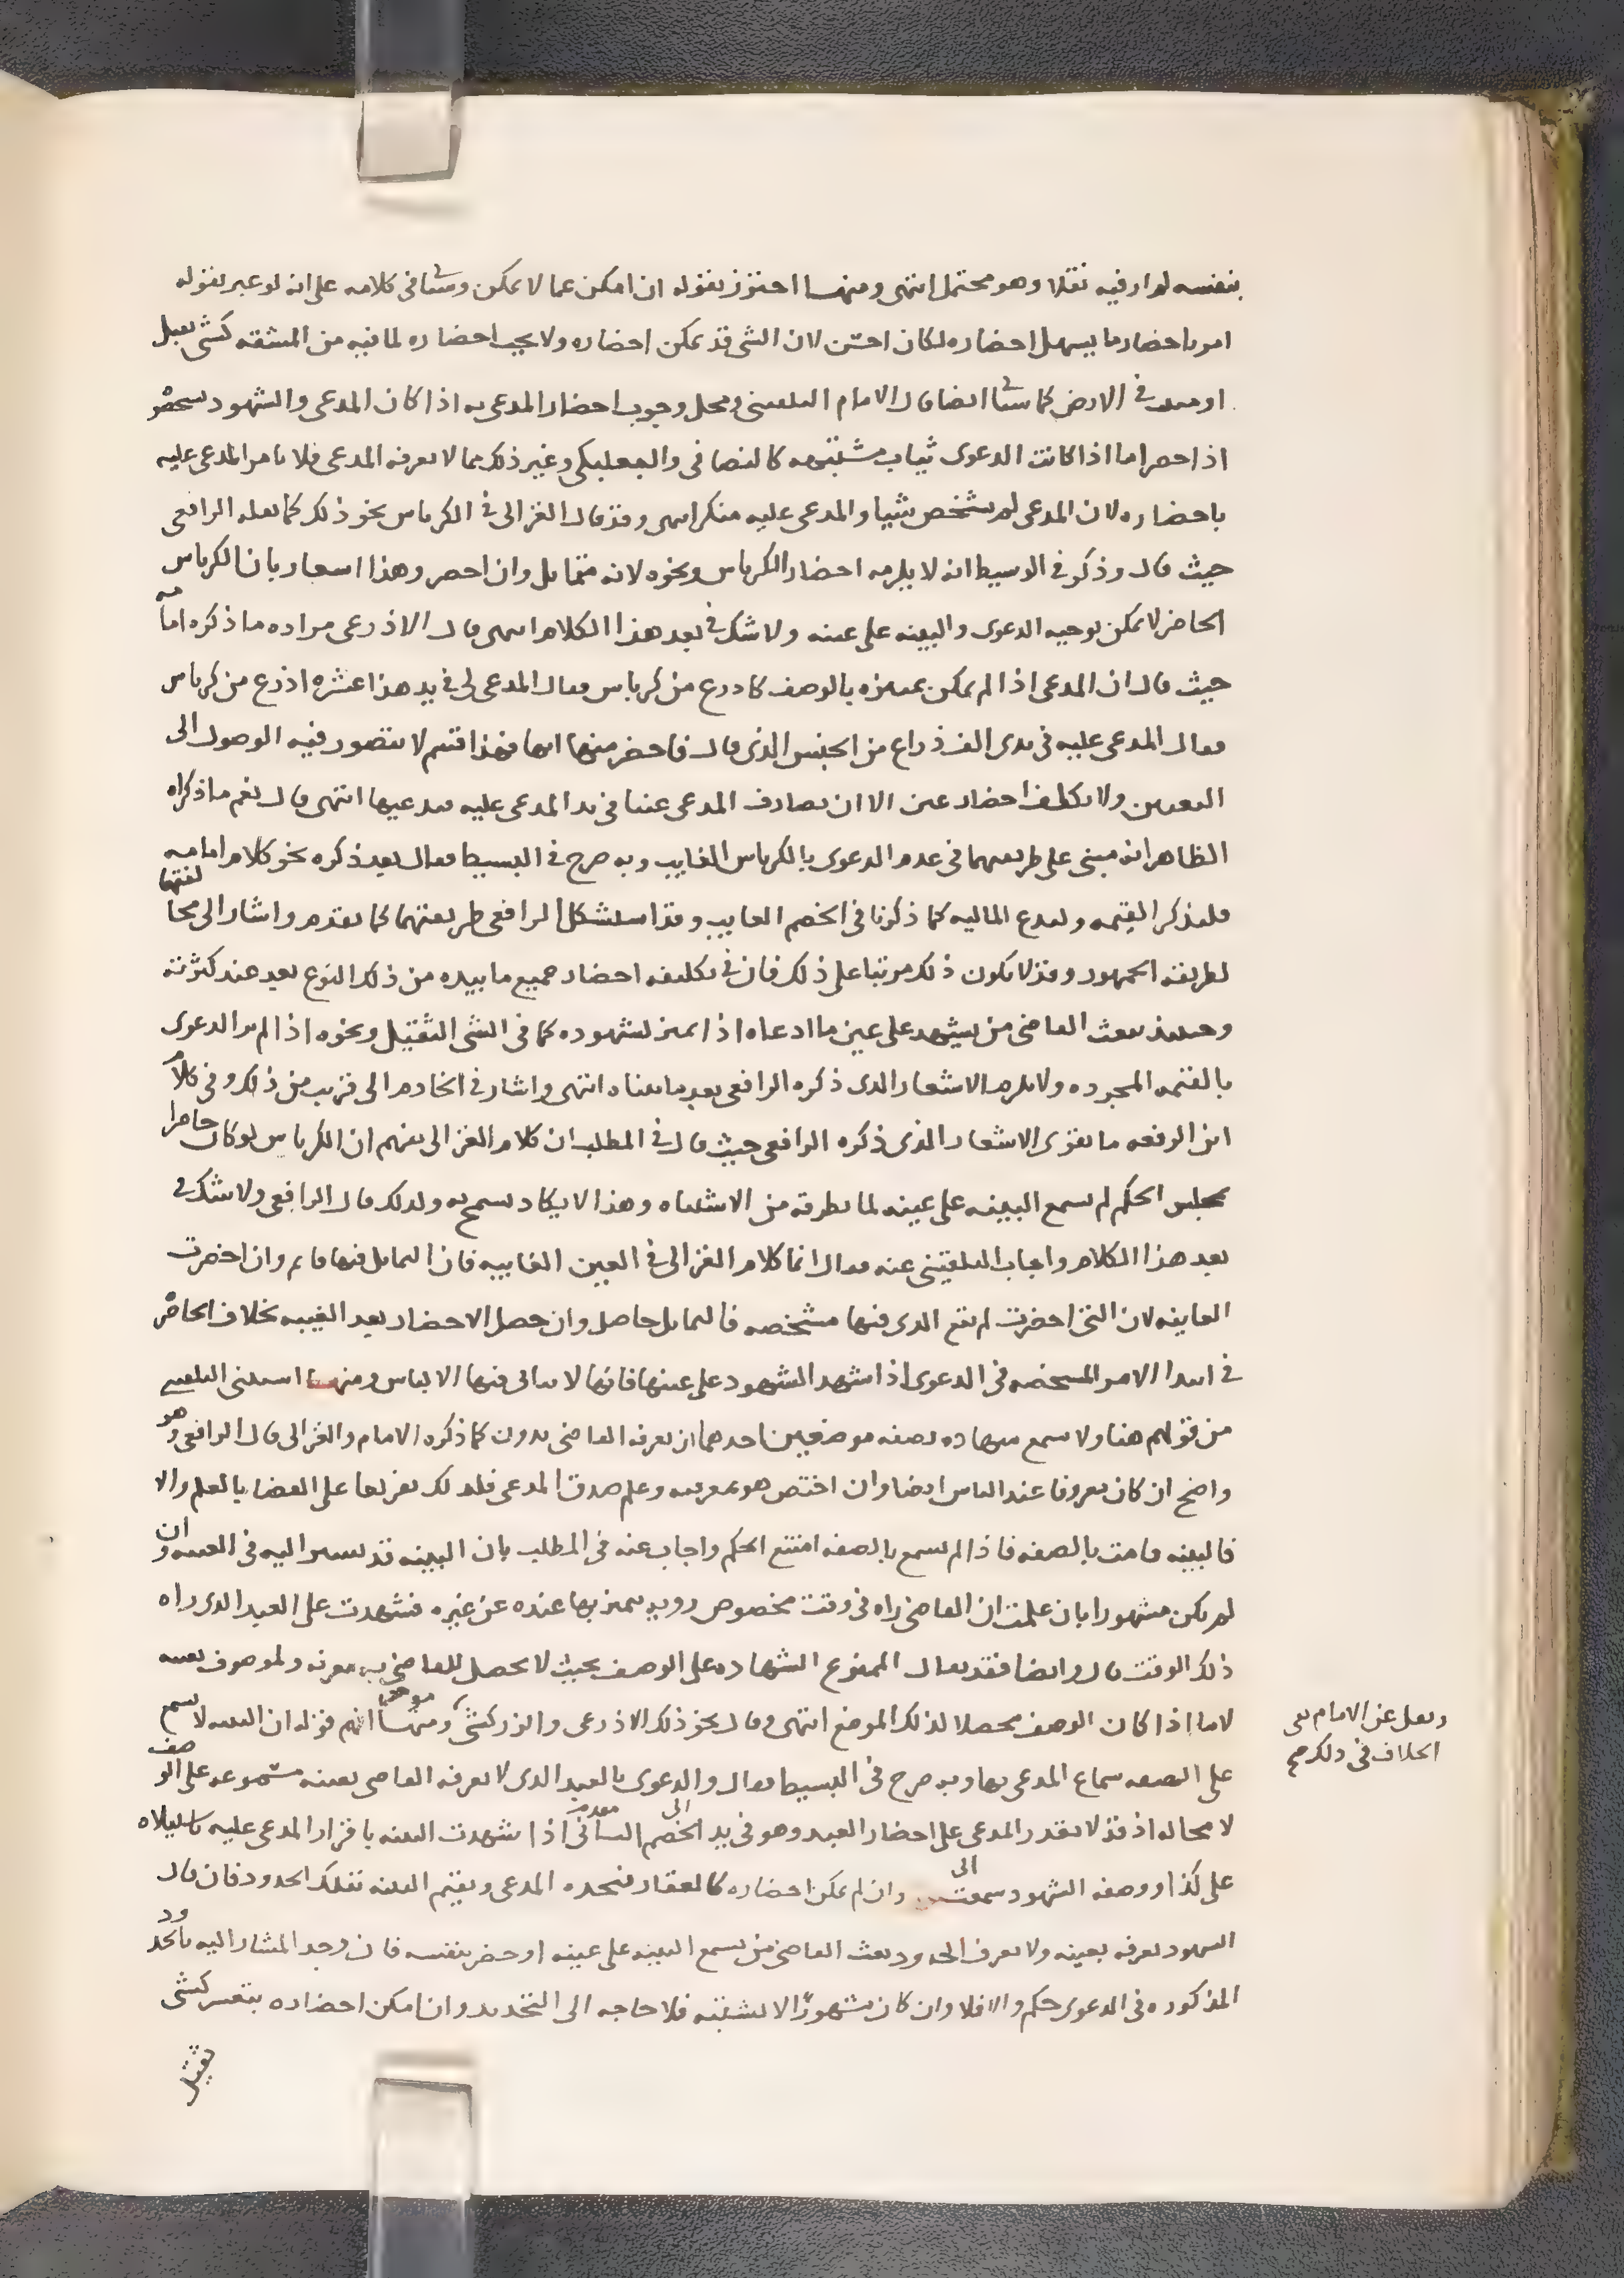 بنفسه لم ار فيه نقلا وهو محتمل انتهى ومنها احترز بقوله ان امكن عما لا يمكن وسيأتى فى كلامه على انه لو عبر بقوله
امر باحضار ما يسهل احضاره لكان احسن لان الشى قد يمكن احضاره ولا يجب احضاره لما فيه من المشقه كشى ثقيل
او مثبت فى الارض كما سيأتى ايضا قال الامام البلقينى ومحل وجوب احضار المدعى به اذا كان المدعى والشهود
اذا حضر اما اذا كانت الدعوى بثياب مشتبهه كالنصافى والبعلبكى وغير ذلك مما لا يعرفه المدعى فلا يامر المدعى عليه
باحضاره لان المدعى لم يشخص شيا والمدعى عليه منكر انتهى وقد قال الغزالى فى الكرباس نحو ذلك كما نقله الرافعى
حيث قال وذكر فى الوسيط انه لا يلزمه احضار الكرباس ونحوه لانه متماثل وان احضر وهذا اشعار بان الكرباس
الحاضر لا يمكن توجيه الدعوى والبينه على عينه ولا شك فى بعد هذا الكلام انتهى قال الاذرعى مراده ما ذكره امامه
حيث قال ان المدعى اذا لم يمكن تمييزه بالوصف كاذرع من كرباس فقال المدعى لى فى يد هذا عشره اذرع من كرباس
فقال المدعى عليه فى يدى الف ذراع من الجنس الذى قال فاحضر منها ايها فهذا قسم لا يتصور فيه الوصول الى
التعيين ولا يكلف احضار عين الا ان يصادف المدعى عينا فى يد المدعى عليه فيدعيها انتهى قال نعم ما ذكراه
الظاهر انه مبنى على طريقهما فى عدم الدعوى بالكرباس الغايب وبه صرح فى البسيط فقال بعد ذكره نحو كلام امامه
فليذكر القيمه وليدع الماليه كما ذكرنا فى الخصم الغايب وقد استشكل الرافعى طريقتهما كما تقدم واشار الى مخالفتها
لطريقه الجمهور وقد لا يكون ذلك مرتبا على ذلك فان فى تكليفه احضار جميع ما بيده من ذلك النوع بعد عند كثرته
وحينيذ يبعث القاضى من يشهد على عين ما ادعاه اذا تميز لشهوده كما فى الشى الثقيل ونحوه اذا لم ير الدعوى
بالقيمه المجرده ولا يلزم الاشعار الذى ذكره الرافعى بعد ما بيناه انتهى واشار فى الخادم الى قريب من ذلك وفى كلام
ابن الرفعه ما يقوى الاشعار الذى ذكره الرافعى حيث قال فى المطلب ان كلام الغزالى يفهم ان الكرباس لو كان حاضرا
مجلس الحكم لم يسمع البينه على عينه لما يطرقه من الاشتباه وهذا لا يكاد يسمح به ولذلك قال الرافعى ولا شك فى
بعد هذا الكلام واجاب البلقينى عنه فقال انما كلام الغزالى فى العين الغايبه فان التماثل فيها قايم وان احضرت
الغايبه لان التى احضرت لم تقع الدعوى فيها مشخصه فالتماثل حاصل وان حصل الاحضار بعد الغيبه بخلاف الحاضر
فى ابتدا الامر المشخصه فى الدعوى اذا شهد الشهود على عينها فانها لا يتاتى فيها الالباس ومنها استثنى البلقينى
من قولهم هنا ولا تسمع شهاده بصفه موضعين احدهما ان يعرفه القاضى بدون كما ذكره الامام والغزالى قال الرافعى وهو
واضح ان كان معروفا عند الناس ايضا وان اختص هو بمعرفته وعلم صدق المدعى فلذلك تفريعا على القضا بالعلم والا
فالبينه قامت بالصفه فاذا لم تسمع بالصفه امتنع الحكم واجاب عنه فى المطلب بان البينه قد تستند اليه فى الغيبه وان
لم يكن مشهورا بان علمت ان القاضى راه فى وقت مخصوص رويه تميز بها عنده عن غيره فشهدت على العبد الذى راه
ذلك الوقت قال وايضا فقد يقال الممنوع الشهاده على الوصف بحيث لا يحصل للقاضى به معرفه الموصوف بعينه
لا ما اذا كان الوصف محصلا لذلك الموضع انتهى وقال نحو ذلك الاذرعى والزركشى ومنها افهم قوله ان البينه لا تسمع
على الصفه سماع المدعى بها وبه صرح فى البسيط فقال والدعوى بالعبد الذى لا يعرفه القاضى بعينه مسموعه على الوصف
لا محاله اذ قد لا يقدر المدعى على احضار العبد وهو فى يد الخصم الثانى اذا شهدت البينه باقرار المدعى عليه باستيلاه
على كذا ووصفه الشهود سمعت وان لم يمكن احضاره كالعقار فيحده المدعى ويقيم البينه بتلك الحدود فان قال
الشهود نعرفه بعينه ولا نعرف الحدود بعث القاضى من يسمع البينه على عينه او حضر بنفسه فان وجد المشار اليه بالحدود
المذكوره فى الدعوى حكم والا فلا وان كان مشهورا لا يشتبه فلا حاجه الى التحديد وان امكن احضاره بتعسر كشى
ثقيل
ونقل عن الامام نفى
الخلاف فى ذلك صح